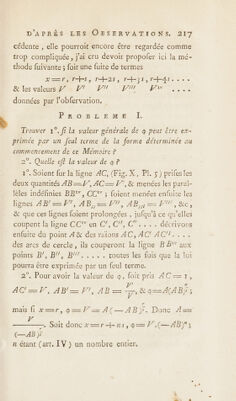 D'APRÈS LES OBSERVATIONS. 217
cédente, elle pourroit encore être regardée comme
trop compliquée, j'ai cru devoir proposer ici la mé-
thode suivante; soit une suite de termes
x=r, r+s, r+2s, r+3s, r+4s....
& les valeurs V V' V'' V''' V''''....
données par l'observation.
PROBLEME I.
Trouver 1°. si la valeur générale de q peut être ex-
primée par un seul terme de la forme déterminée au
commencement de ce Mémoire?
2°. Quelle est la valeur de q?
1°. Soient sur la ligne AC, (Fig. X, Pl. 5) prises les
deux quantités AB=V, AC=V', & menées les paral-
lèles indéfinies CC''; soient menées ensuite les
lignes &c,
& que ces lignes soient prolongées, jusqu'à ce qu'elles
coupent la ligne CC'' en C', C'', C'''.... décrivons
ensuite du point A & des raions AC, AC' AC''....
des arcs de cercle, ils couperont la ligne aux
points B', B'', B'''..... toutes les fois que la loi
pourra être exprimée par un seul terme.
2°. Pour avoir la valeur de q, soit pris AC=1,
AC'=V, AB'=V', AB=
mais si x=r, q=V=A(-AB) Donc A=
Soit donc x=r+ns, q=V.(-AB)ⁿ;
n étant (art. IV) un nombre entier.